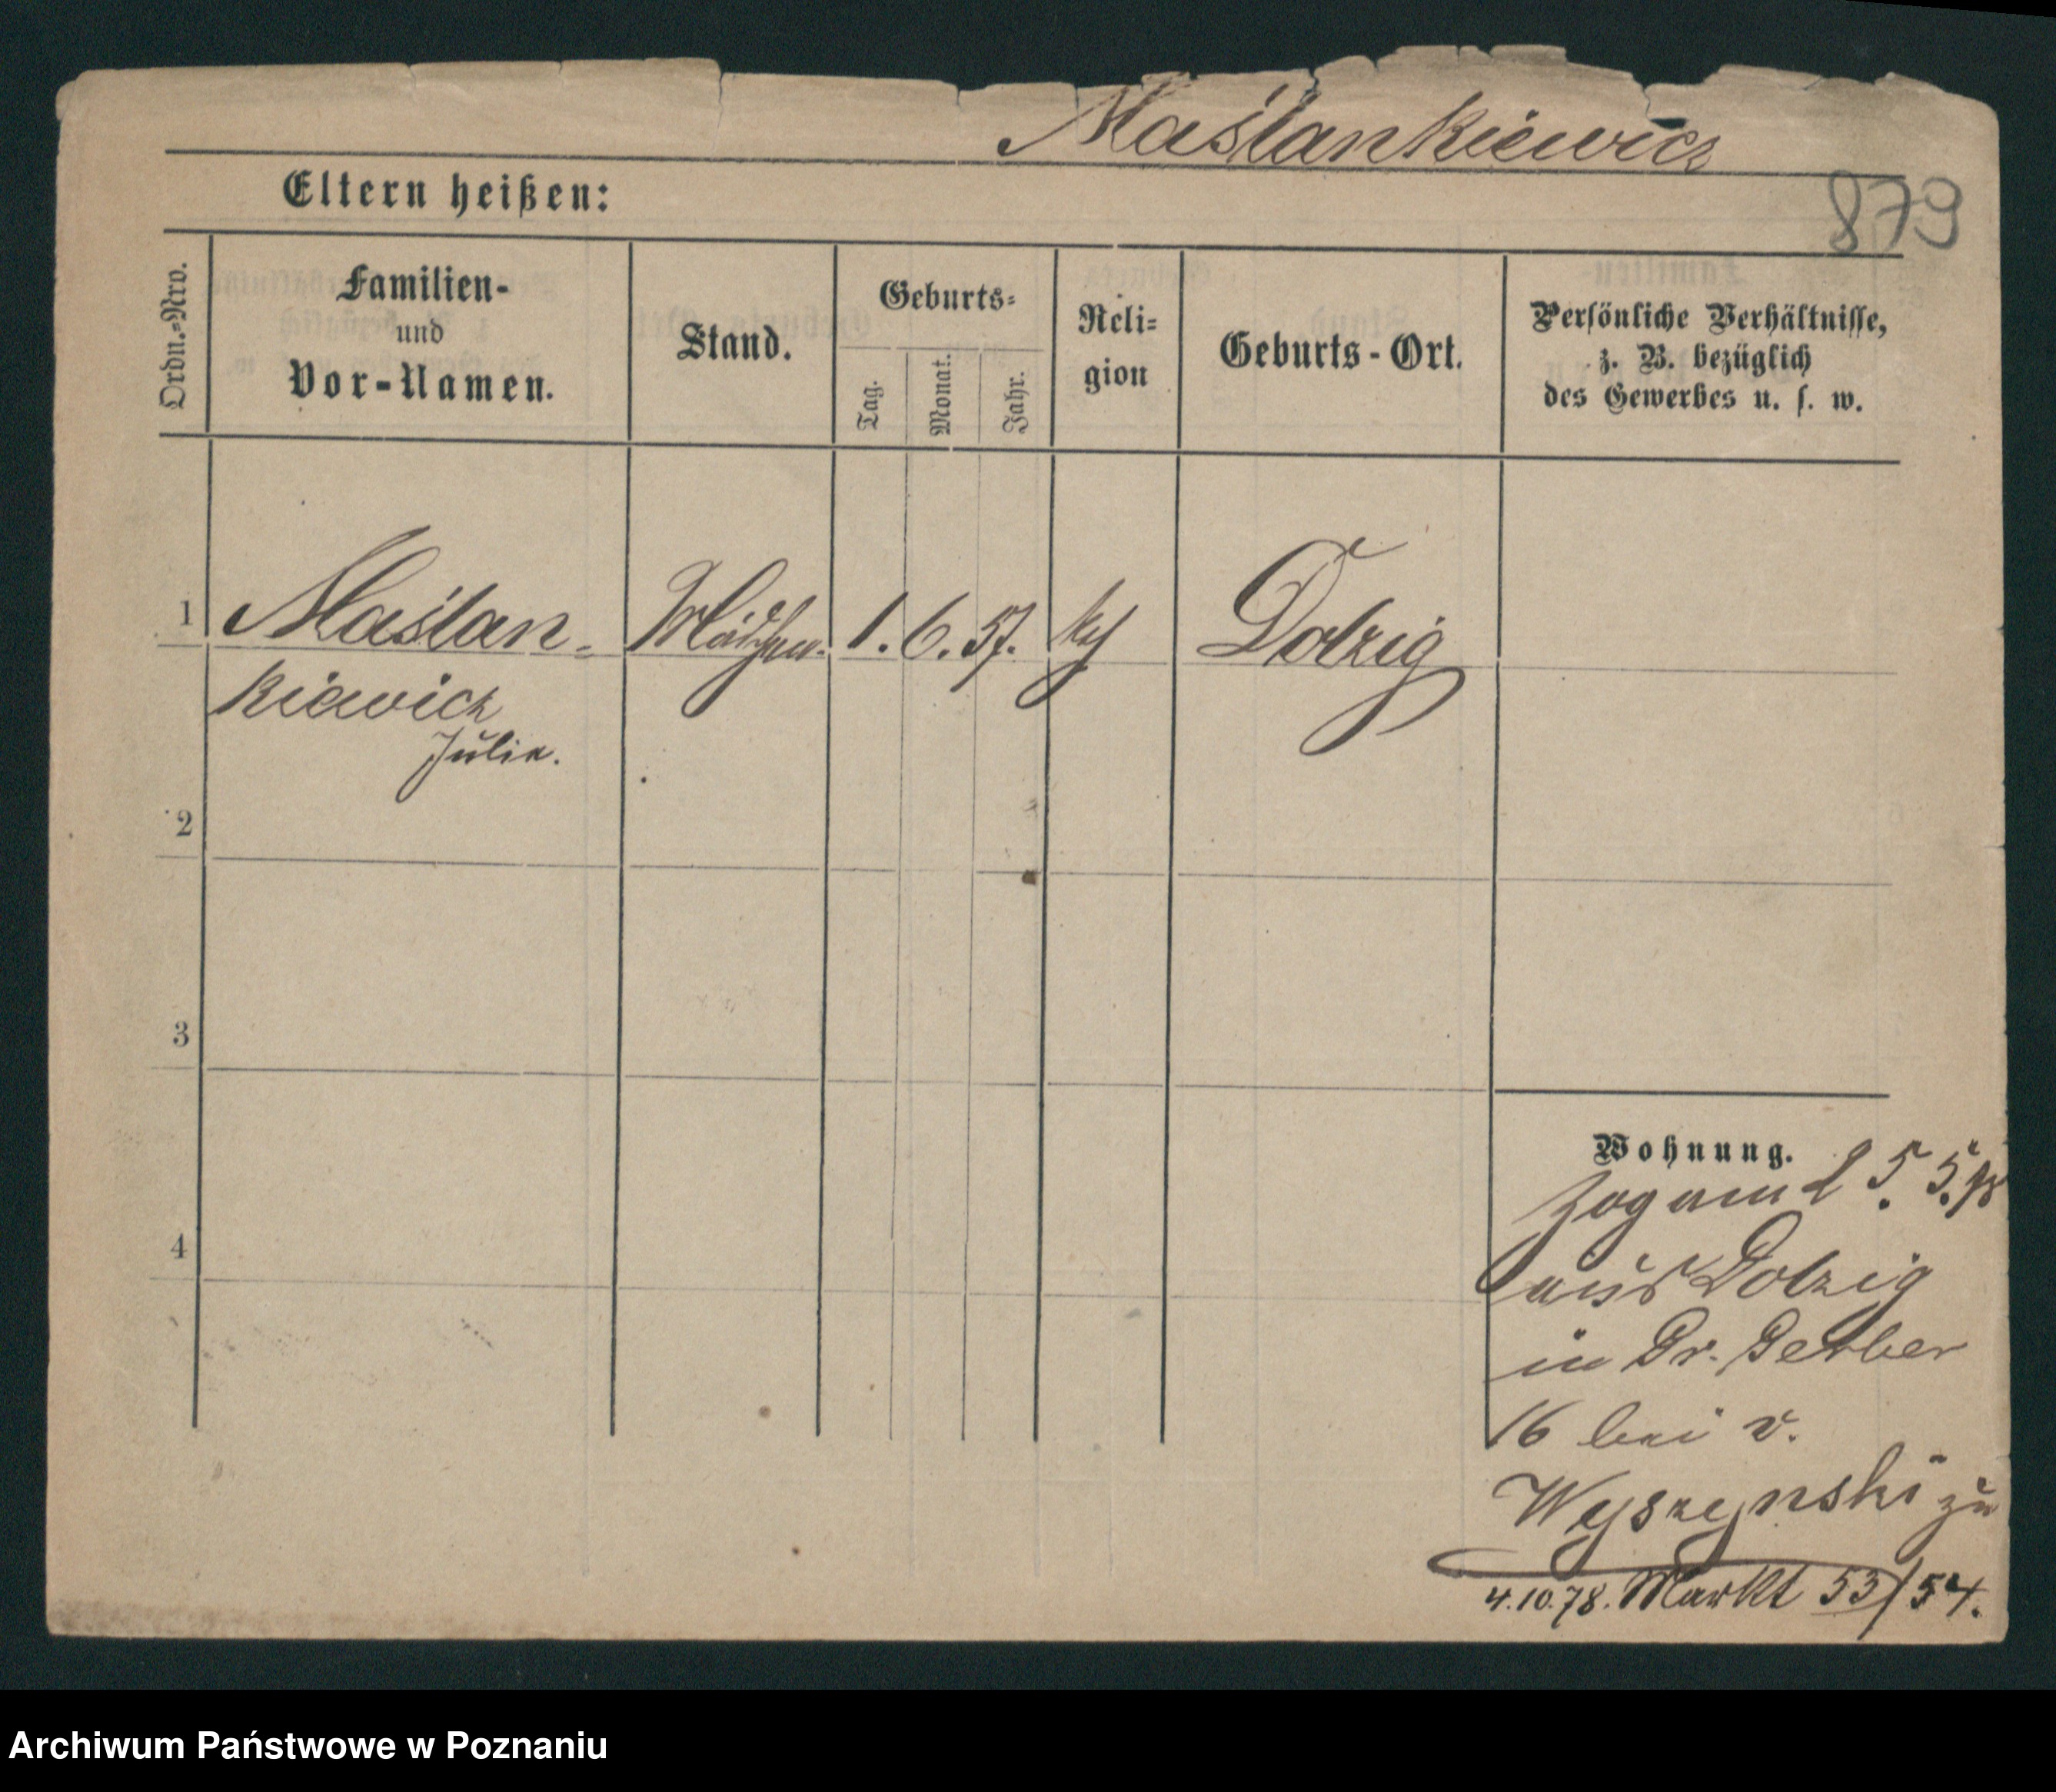 Maślankiewicz
879
Eltern heißen:
Ordn.=Nro.
Familien-
und
Vor-Namen.
Stand.
Geburts=
Tag.
Monat.
Jahr.
Reli=
gion
Geburts-Ort.
Persönliche Verhältnisse,
z. B. bezüglich
des Gewerbes u. s. w.
1 Maślan= Mädchen. 1. 6. 57. Dolzig
kiewicz
Julia.
2
3
4
Wohnung.
zog am 5. 5. 78
aus Dolzig
in Gr. Gerber
16 bei v.
Wyszynski zu
4.10.78. Markt 53/54.
Archiwum Państwowe w Poznaniu